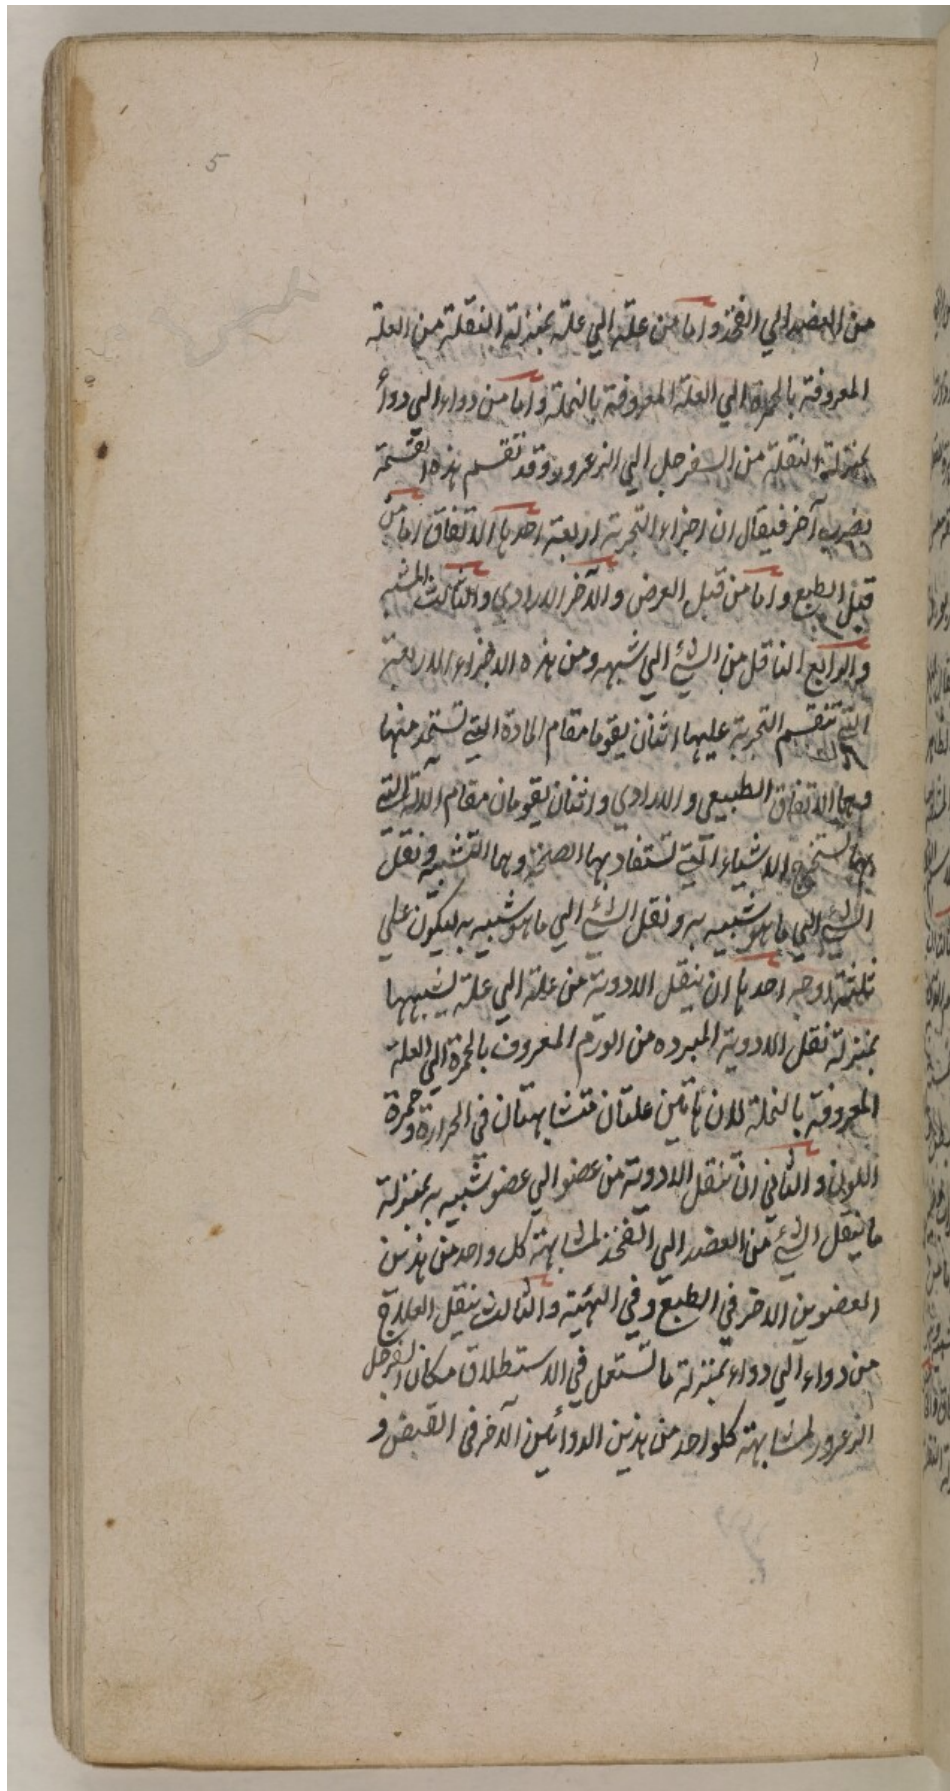 5
من العضد الي الفخذ واما من علة الي علة بمنزلة النقلة من العلة
المعروفة بالحمرة الي العلة المعروفة بالنملة واما من دواء الي دواء
بمنزلة النقلة من السفرجل الي الزعرور وقد تقسم هذه القسمة
بضرب آخر فيقال ان اجزاء التجربة اربعة احدها الاتفاق اما من
قبل الطبع واما من قبل العرض والآخر الارادي والثالث المشبه
والرابع الناقل من الشيء الي شبهه ومن هذه الاجزاء الاربعة
التي تنقسم التجربة عليها اثنان يقوما مقام المادة التي تستمد منها
وهما الاتفاق الطبيعي والارادي واثنان يقومان مقام الآلة التي
بها تستخرج الاشياء التي تستفاد بها الصحة وهما التشبيه ونقل
الشيء الي ما هو شبيه به ونقل الشيء الي ما هو شبيه به ليكون علي
ثلثة اوجه احدها ان ينقل الادوية من علة الي علة يشبهها
بمنزلة نقل الادوية المبرده من الورم المعروف بالحمرة الي العلة
المعروفة بالنملة لان هاتين علتان متشابهتان في الحرارة وحمرة
اللون والثاني ان تنقل الادوية من عضو الي عضو شبيه به بمنزلة
ما ينقل الشيء من العضد الي الفخذ لمشابهة كل واحد من هذين
العضوين الاخر في الطبع وفي الهيئة والثالث ينقل العلاج
من دواء الي دواء بمنزلة ما تستعمل في الاستطلاق مكان السفرجل
الزعرور لمشابهة كلواحد من هذين الدوائين الآخر في القبض و